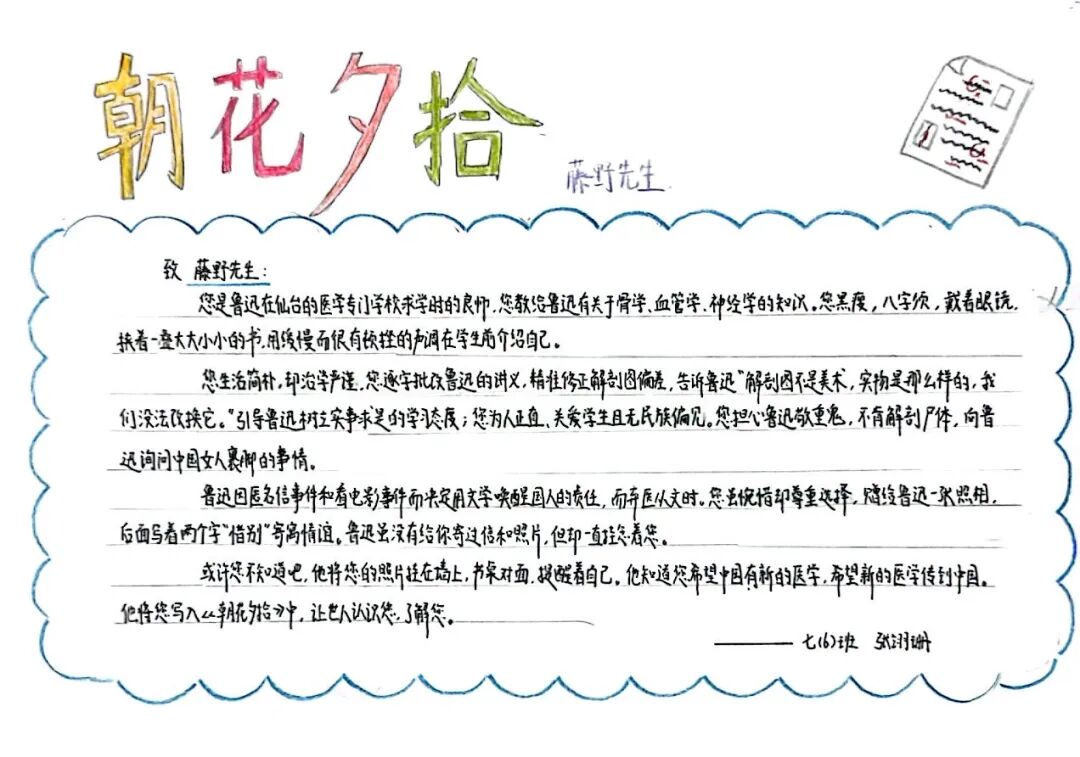 朝花夕拾
藤野先生
致 藤野先生:
您是鲁迅在仙台的医学专门学校求学时的良师,您教给鲁迅有关于骨学、血管学、神经学的知识。您黑瘦,八字须,戴着眼镜,
挟着一叠大大小小的书,用缓慢而很有顿挫的声调在学生前介绍自己。
您生活简朴,却治学严谨,您逐字批改鲁迅的讲义,精准修正解剖图偏差,告诉鲁迅“解剖图不是美术,实物是那么样的,我
们没法改换它。”引导鲁迅树立实事求是的学习态度;您为人正直、关爱学生且无民族偏见。您担心鲁迅敬重鬼,不肯解剖尸体,向鲁
迅询问中国女人裹脚的事情。
鲁迅因匿名信事件和看电影事件而决定用文学唤醒国人的责任,而弃医从文时。您虽惋惜却尊重选择,赠给鲁迅一张照相,
后面写着两个字“惜别”寄寓情谊。鲁迅虽没有给你寄过信和照片,但却一直念着您。
或许您不知道吧,他将您的照片挂在墙上,书桌对面,提醒着自己。他知道您希望中国有新的医学,希望新的医学传到中国。
他将您写入《朝花夕拾》中,让世人认识您,了解您。
——— 七(6)班 张翊珊